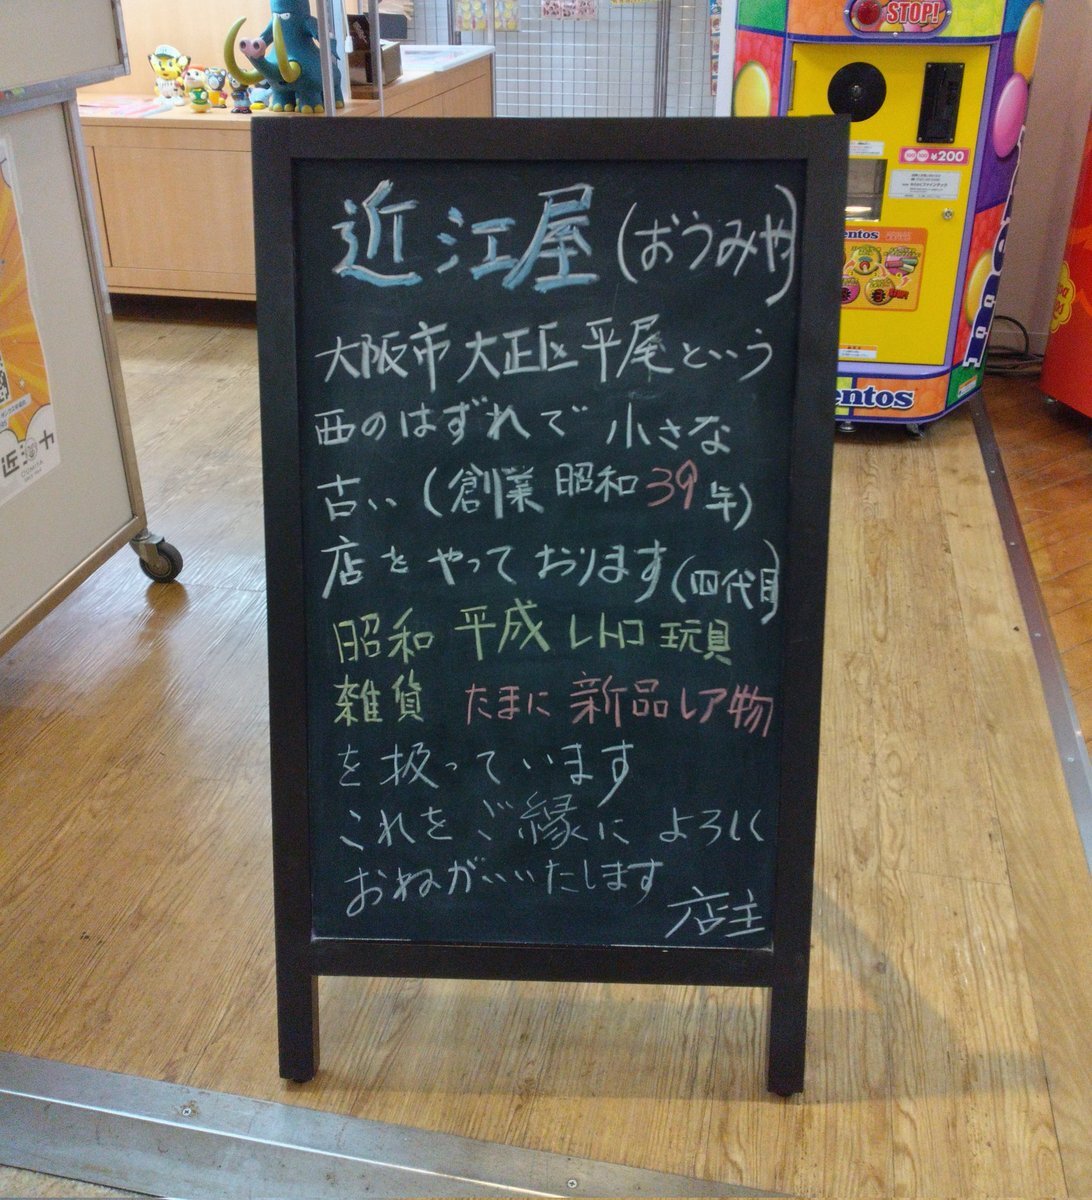 近江屋(おうみや)
大阪市大正区平尾という
西のはずれで 小さな
古い(創業 昭和39年)
店をやっております(四代目)
昭和 平成 レトロ 玩具
雑貨 たまに 新品レア物
を扱っています
これをご縁に よろしく
おねがいいたします
店主
STOP!
100 100 ¥200
entos
entos
近江屋